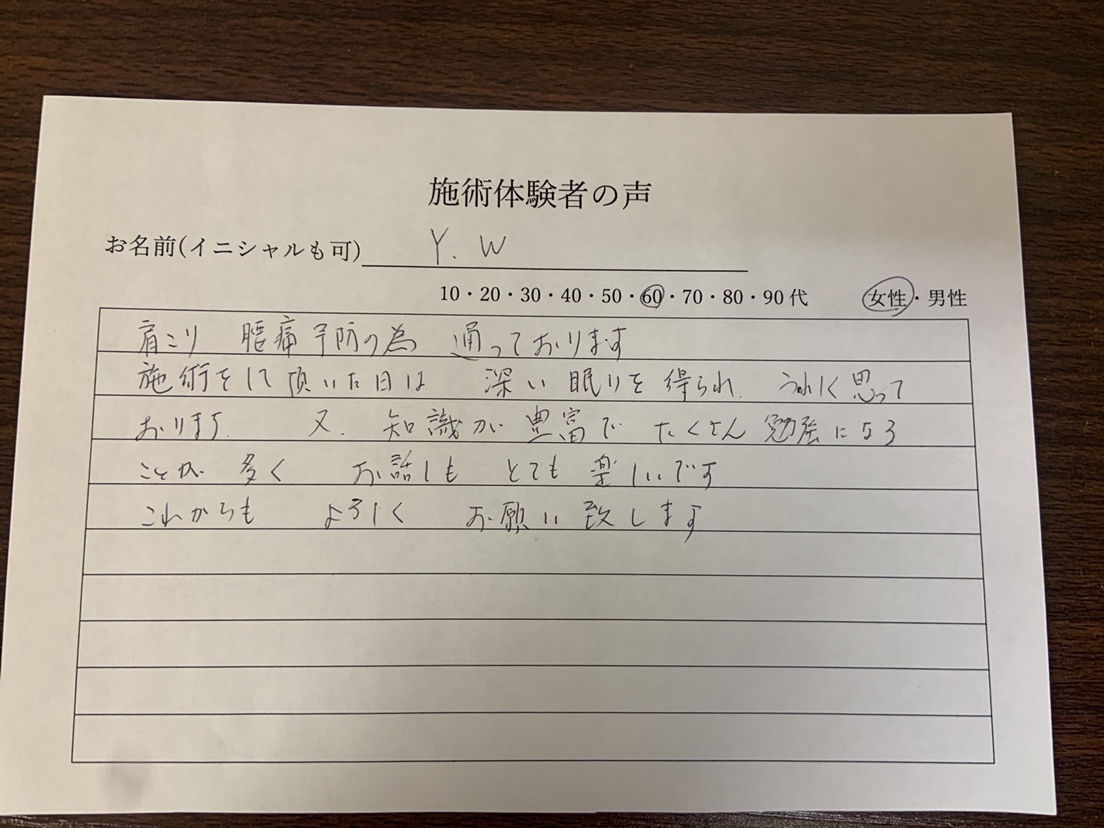 施術体験者の声
お名前(イニシャルも可) Y. W
10・20・30・40・50・60・70・80・90代 女性・男性
肩こり 腰痛予防の為 通っております
施術をして頂いた日は 深い眠りを得られ、うれしく思って
おります。 又、知識が豊富で たくさん勉強になる
ことが 多く お話しも とても 楽しいです
これからも よろしく お願い致します